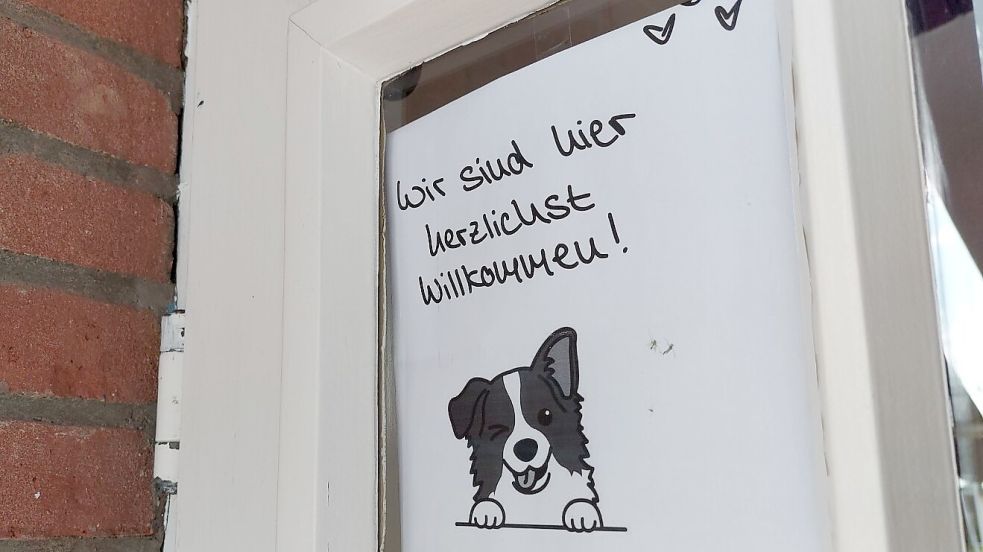 Wir sind hier
herzlichst
Willkommen!